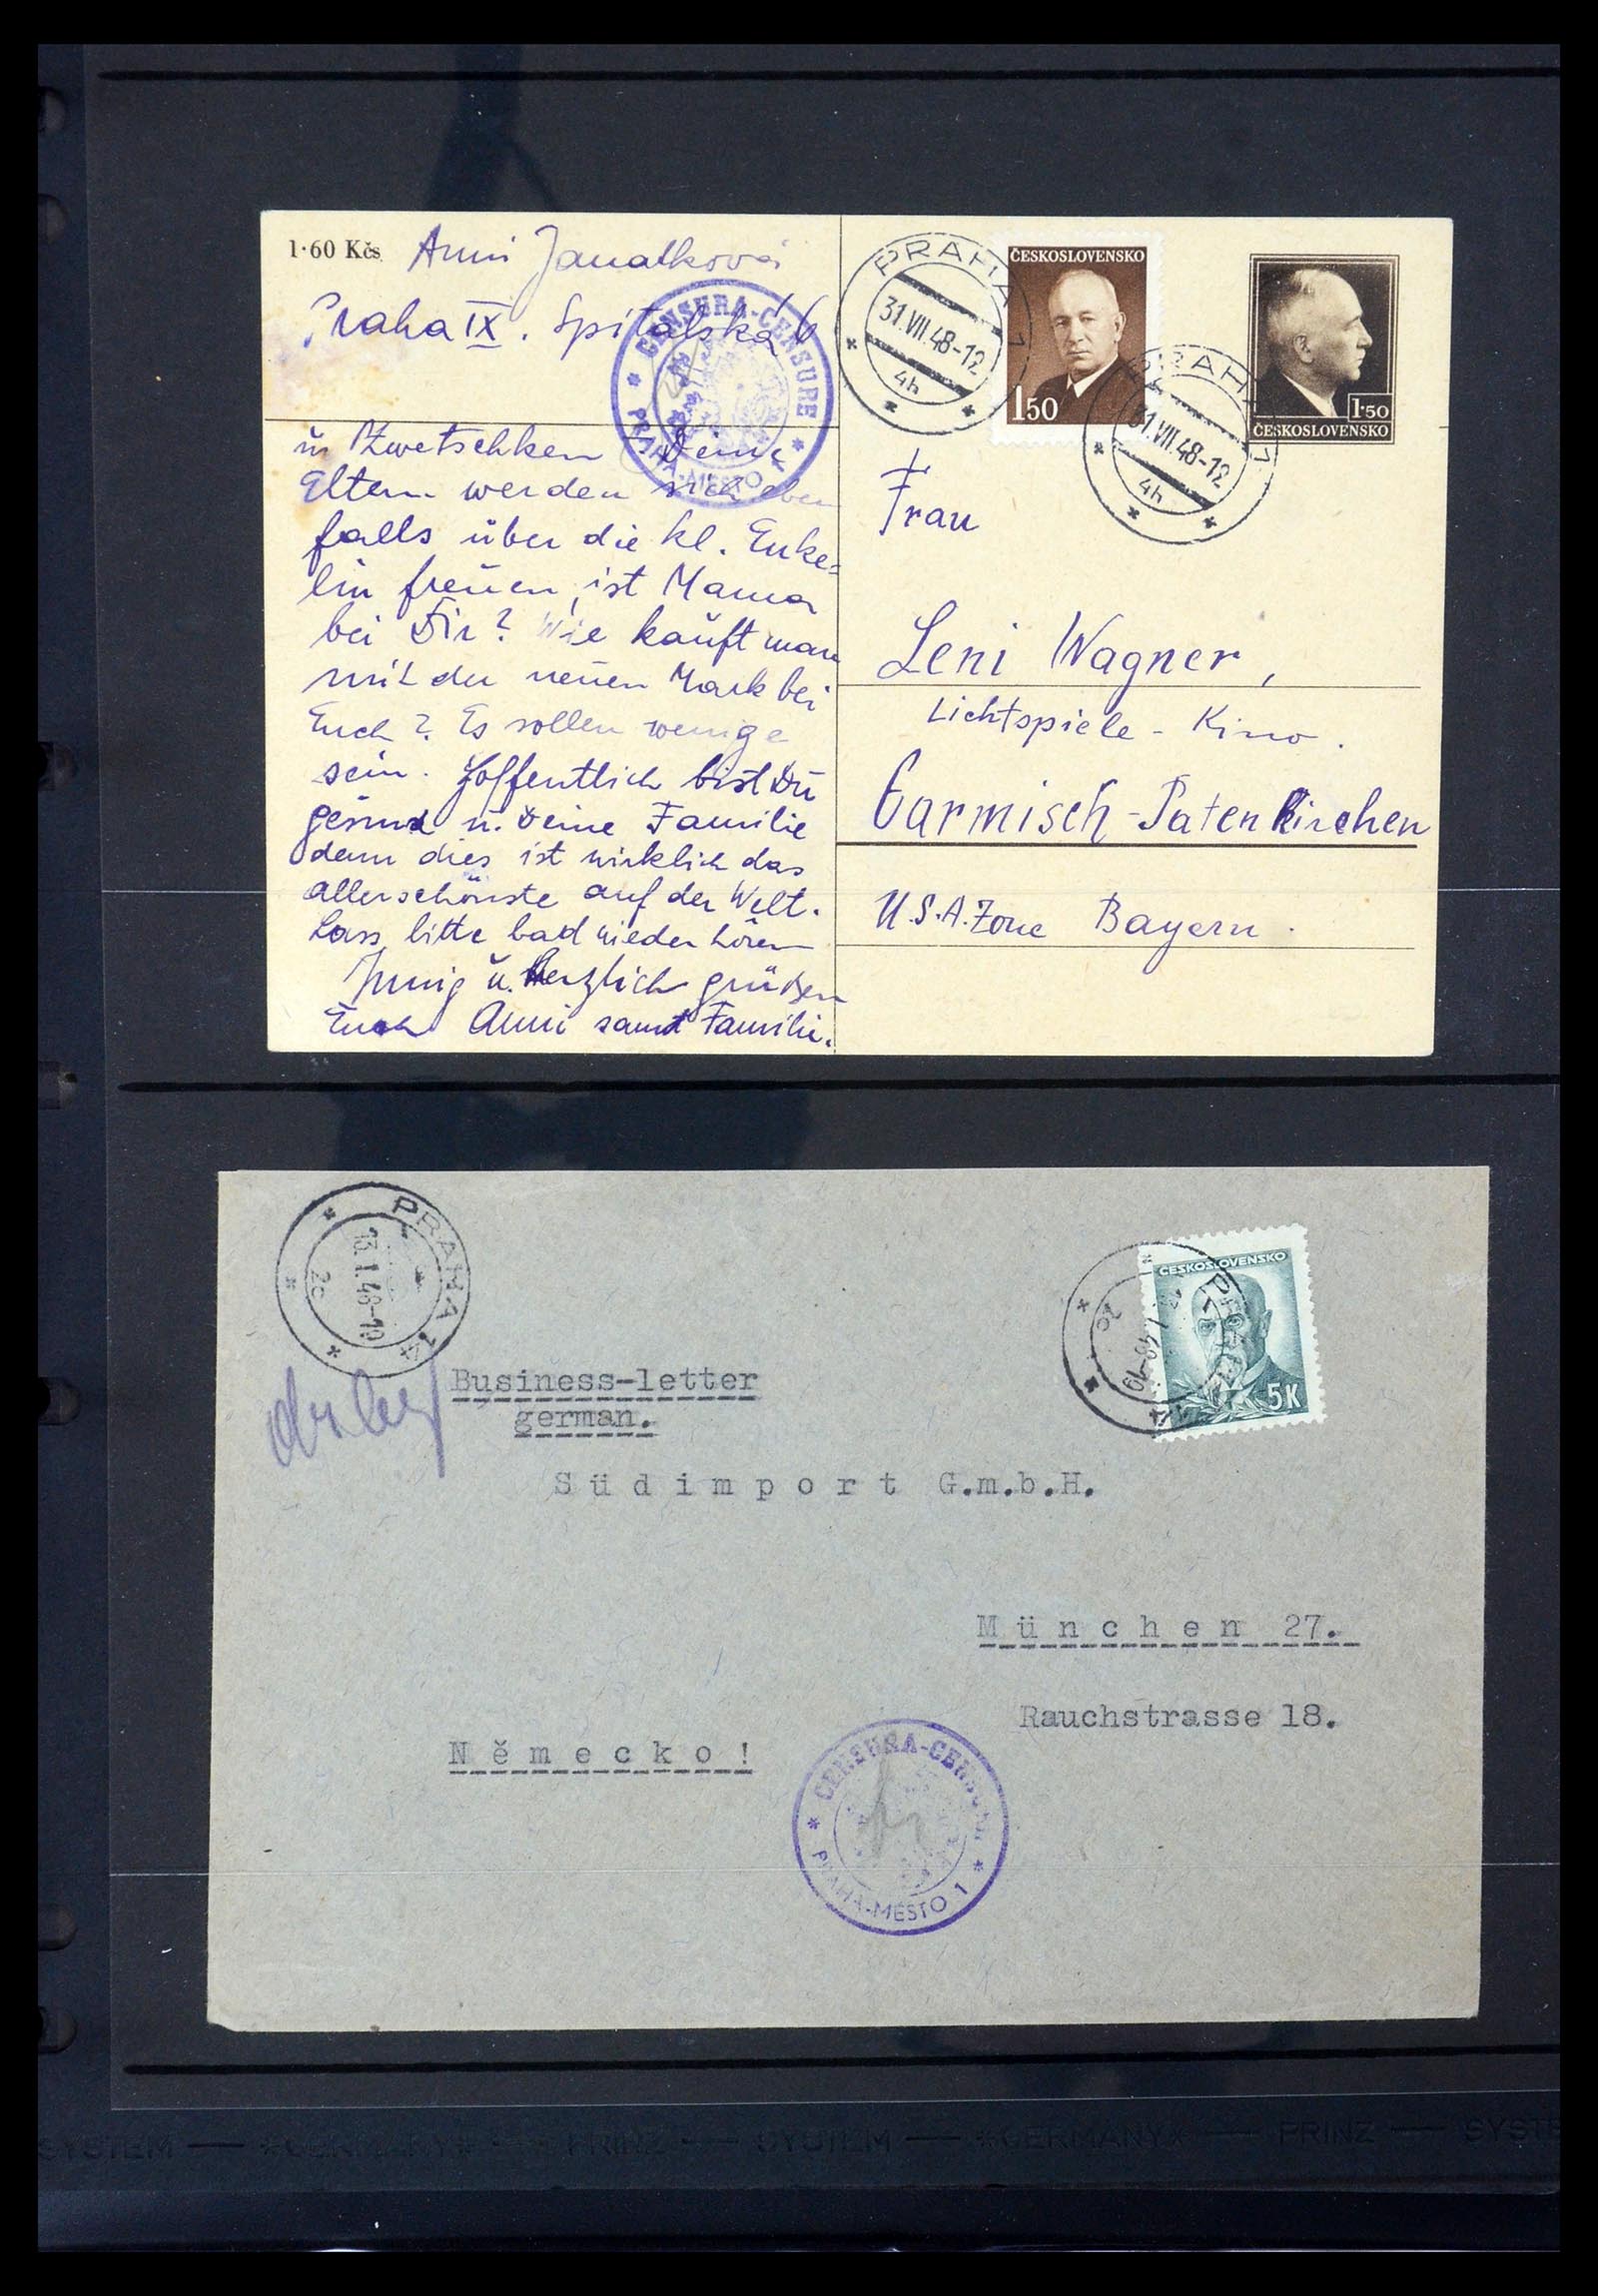 1·60 Kčs
Anni Janatková
Praha IX. Spitalská 6
CENSURA-CENSURE
PRAHA-MĚSTO
u. Zwetschken Deine
Eltern werden sich eben
falls über die kl. Enke=
lin freuen, ist Mama
bei Dir? Wie kauft man
mit der neuen Mark bei
Euch? Es sollen wenige
sein. Hoffentlich bist Du
gesund u. Deine Familie
denn dies ist wirklich das
allerschönste auf der Welt.
Lass bitte bad wieder hören
Innig u. Herzlich grüßen
Euch Anni samt Familie.
PRAHA 7
31.VII.48-12
4h
ČESKOSLOVENSKO
150
PRAHA 7
31.VII.48-12
4h
1·50
ČESKOSLOVENSKO
Frau
Leni Wagner,
Lichtspiele - Kino.
Garmisch-Patenkirchen
U.S.A. Zone Bayern.
PRAHA 14
13.I.48-19
2c
ČESKOSLOVENSKO
5K
2c
Business-letter
german.
Südimport G.m.b.H.
München 27.
Rauchstrasse 18.
Německo!
CENSURA-CENSURE
PRAHA-MĚSTO 1
SYSTEM — *GERMANY* — PRINZ — SYSTEM — *GERMANY* — PRINZ — SYSTE